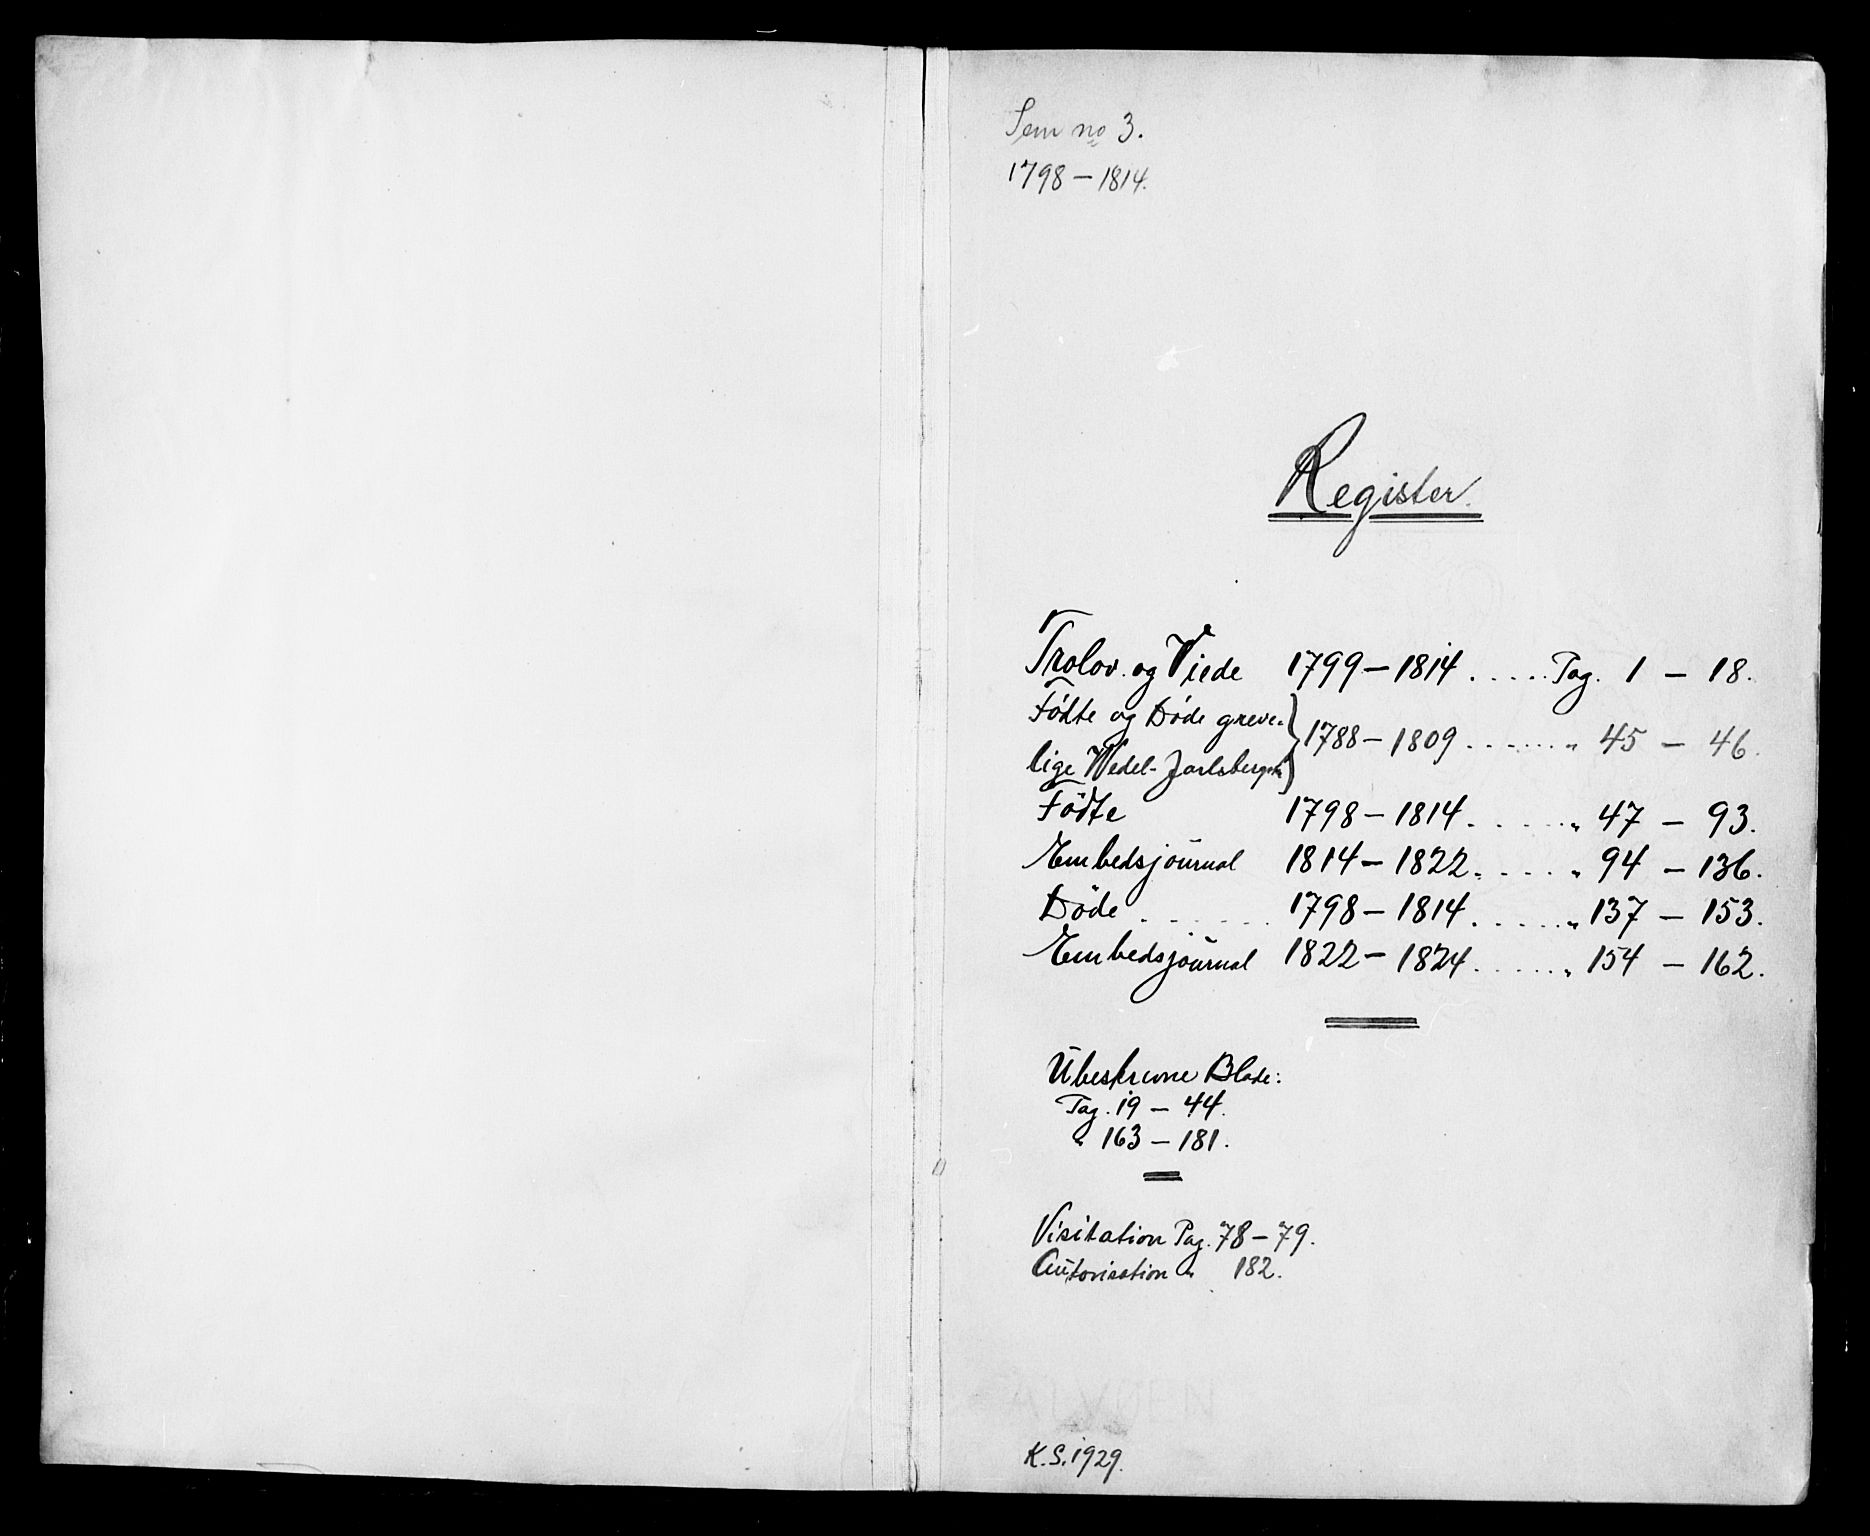 Sem no 3.
1798 – 1814.
Register.
Trolov. og Viede 1799 – 1814 ..... Pag. 1 – 18.
Födte og Döde greve-
lige Wedel-Jarlsbergske } 1788 – 1809 ....... " 45 – 46.
Födte 1798 – 1814 ...... " 47 – 93.
Embedsjournal 1814 – 1822 ..... " 94 – 136.
Döde ...... 1798 – 1814 ..... " 137 – 153.
Embedsjournal 1822 – 1824 ..... " 154 – 162.
Ubeskrevne Blade:
Pag. 19 – 44.
" 163 – 181.
Visitation Pag. 78 – 79.
Autorisation " 182.
ALVØEN
K.S. 1929.